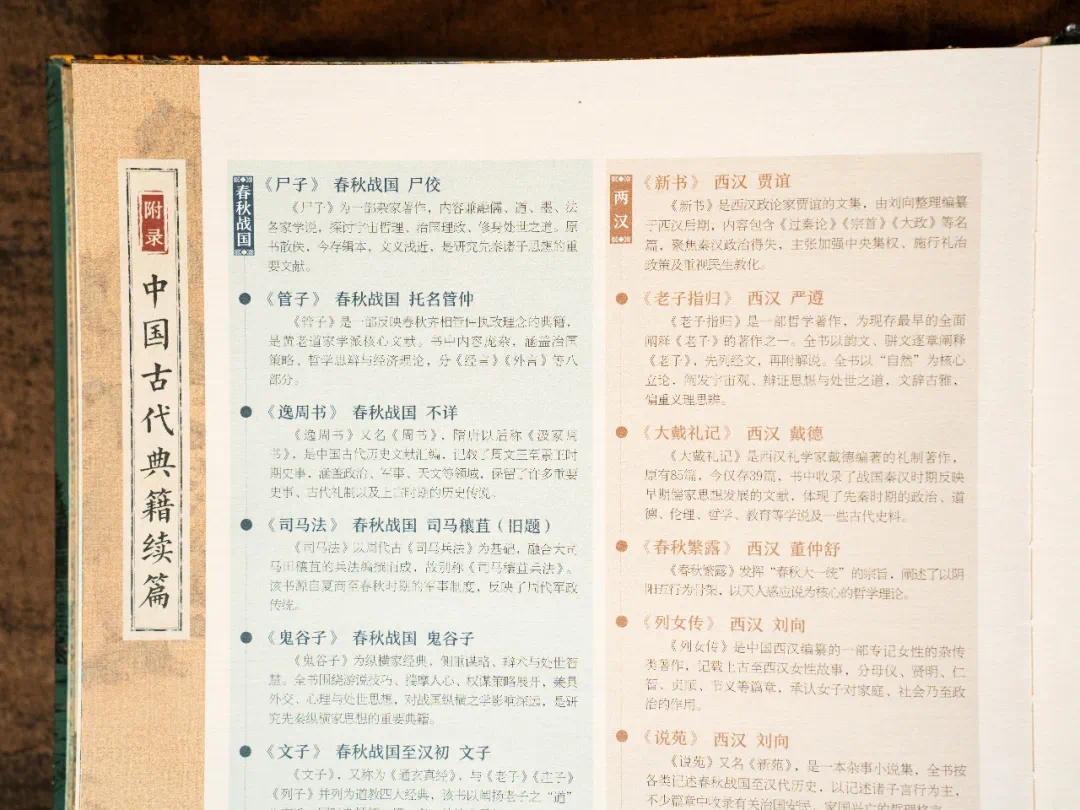 附录
中国古代典籍续篇
春秋战国
《尸子》 春秋战国 尸佼
《尸子》为一部杂家著作，内容兼融儒、道、墨、法
各家学说，探讨宇宙哲理、治国理政、修身处世之道。原
书散佚，今存辑本，文义浅近，是研究先秦诸子思想的重
要文献。
《管子》 春秋战国 托名管仲
《管子》是一部反映春秋齐相管仲执政理念的典籍，
是黄老道家学派核心文献。书中内容庞杂，涵盖治国
策略、哲学思辨与经济理论，分《经言》《外言》等八
部分。
《逸周书》 春秋战国 不详
《逸周书》又名《周书》，隋唐以后称《汲冢周
书》，是中国古代历史文献汇编，记叙了周文王至景王时
期史事，涵盖政治、军事、天文等领域，保留了许多重要
史事、古代礼制以及上古时期的历史传说。
《司马法》 春秋战国 司马穰苴（旧题）
《司马法》以周代古《司马兵法》为基础，融合大司
马田穰苴的兵法编撰而成，故别称《司马穰苴兵法》。
该书源自夏商至春秋时期的军事制度，反映了周代军政
传统。
《鬼谷子》 春秋战国 鬼谷子
《鬼谷子》为纵横家经典，侧重谋略、辩术与处世智
慧。全书围绕游说技巧、揣摩人心、权谋策略展开，兼具
外交、心理与处世思想，对战国纵横之学影响深远，是研
究先秦纵横家思想的重要典籍。
《文子》 春秋战国至汉初 文子
《文子》，又称为《通玄真经》，与《老子》《庄子》
《列子》并列为道教四大经典，该书以阐扬老子之“道”
两汉
《新书》 西汉 贾谊
《新书》是西汉政论家贾谊的文集，由刘向整理编纂
于西汉后期，内容包含《过秦论》《宗首》《大政》等名
篇，聚焦秦汉政治得失，主张加强中央集权、施行礼治
政策及重视民生教化。
《老子指归》 西汉 严遵
《老子指归》是一部哲学著作，为现存最早的全面
阐释《老子》的著作之一。全书以韵文、骈文逐章阐释
《老子》，先列经文，再附解说。全书以“自然”为核心
立论，阐发宇宙观、辩证思想与处世之道，文辞古雅，
偏重义理思辨。
《大戴礼记》 西汉 戴德
《大戴礼记》是西汉礼学家戴德编著的礼制著作，
原有85篇，今仅存39篇，书中收录了战国秦汉时期反映
早期儒家思想发展的文献，体现了先秦时期的政治、道
德、伦理、哲学、教育等学说及一些古代史料。
《春秋繁露》 西汉 董仲舒
《春秋繁露》发挥“春秋大一统”的宗旨，阐述了以阴
阳五行为骨架，以天人感应说为核心的哲学理论。
《列女传》 西汉 刘向
《列女传》是中国西汉编纂的一部专记女性的杂传
类著作，记载上古至西汉女性故事，分母仪、贤明、仁
智、贞顺、节义等篇章，承认女子对家庭、社会乃至政
治的作用。
《说苑》 西汉 刘向
《说苑》又名《新苑》，是一本杂事小说集，全书按
各类记述春秋战国至汉代历史，以记述诸子言行为主，
不少篇章中收录有关治国安民、家国兴亡的哲理格言